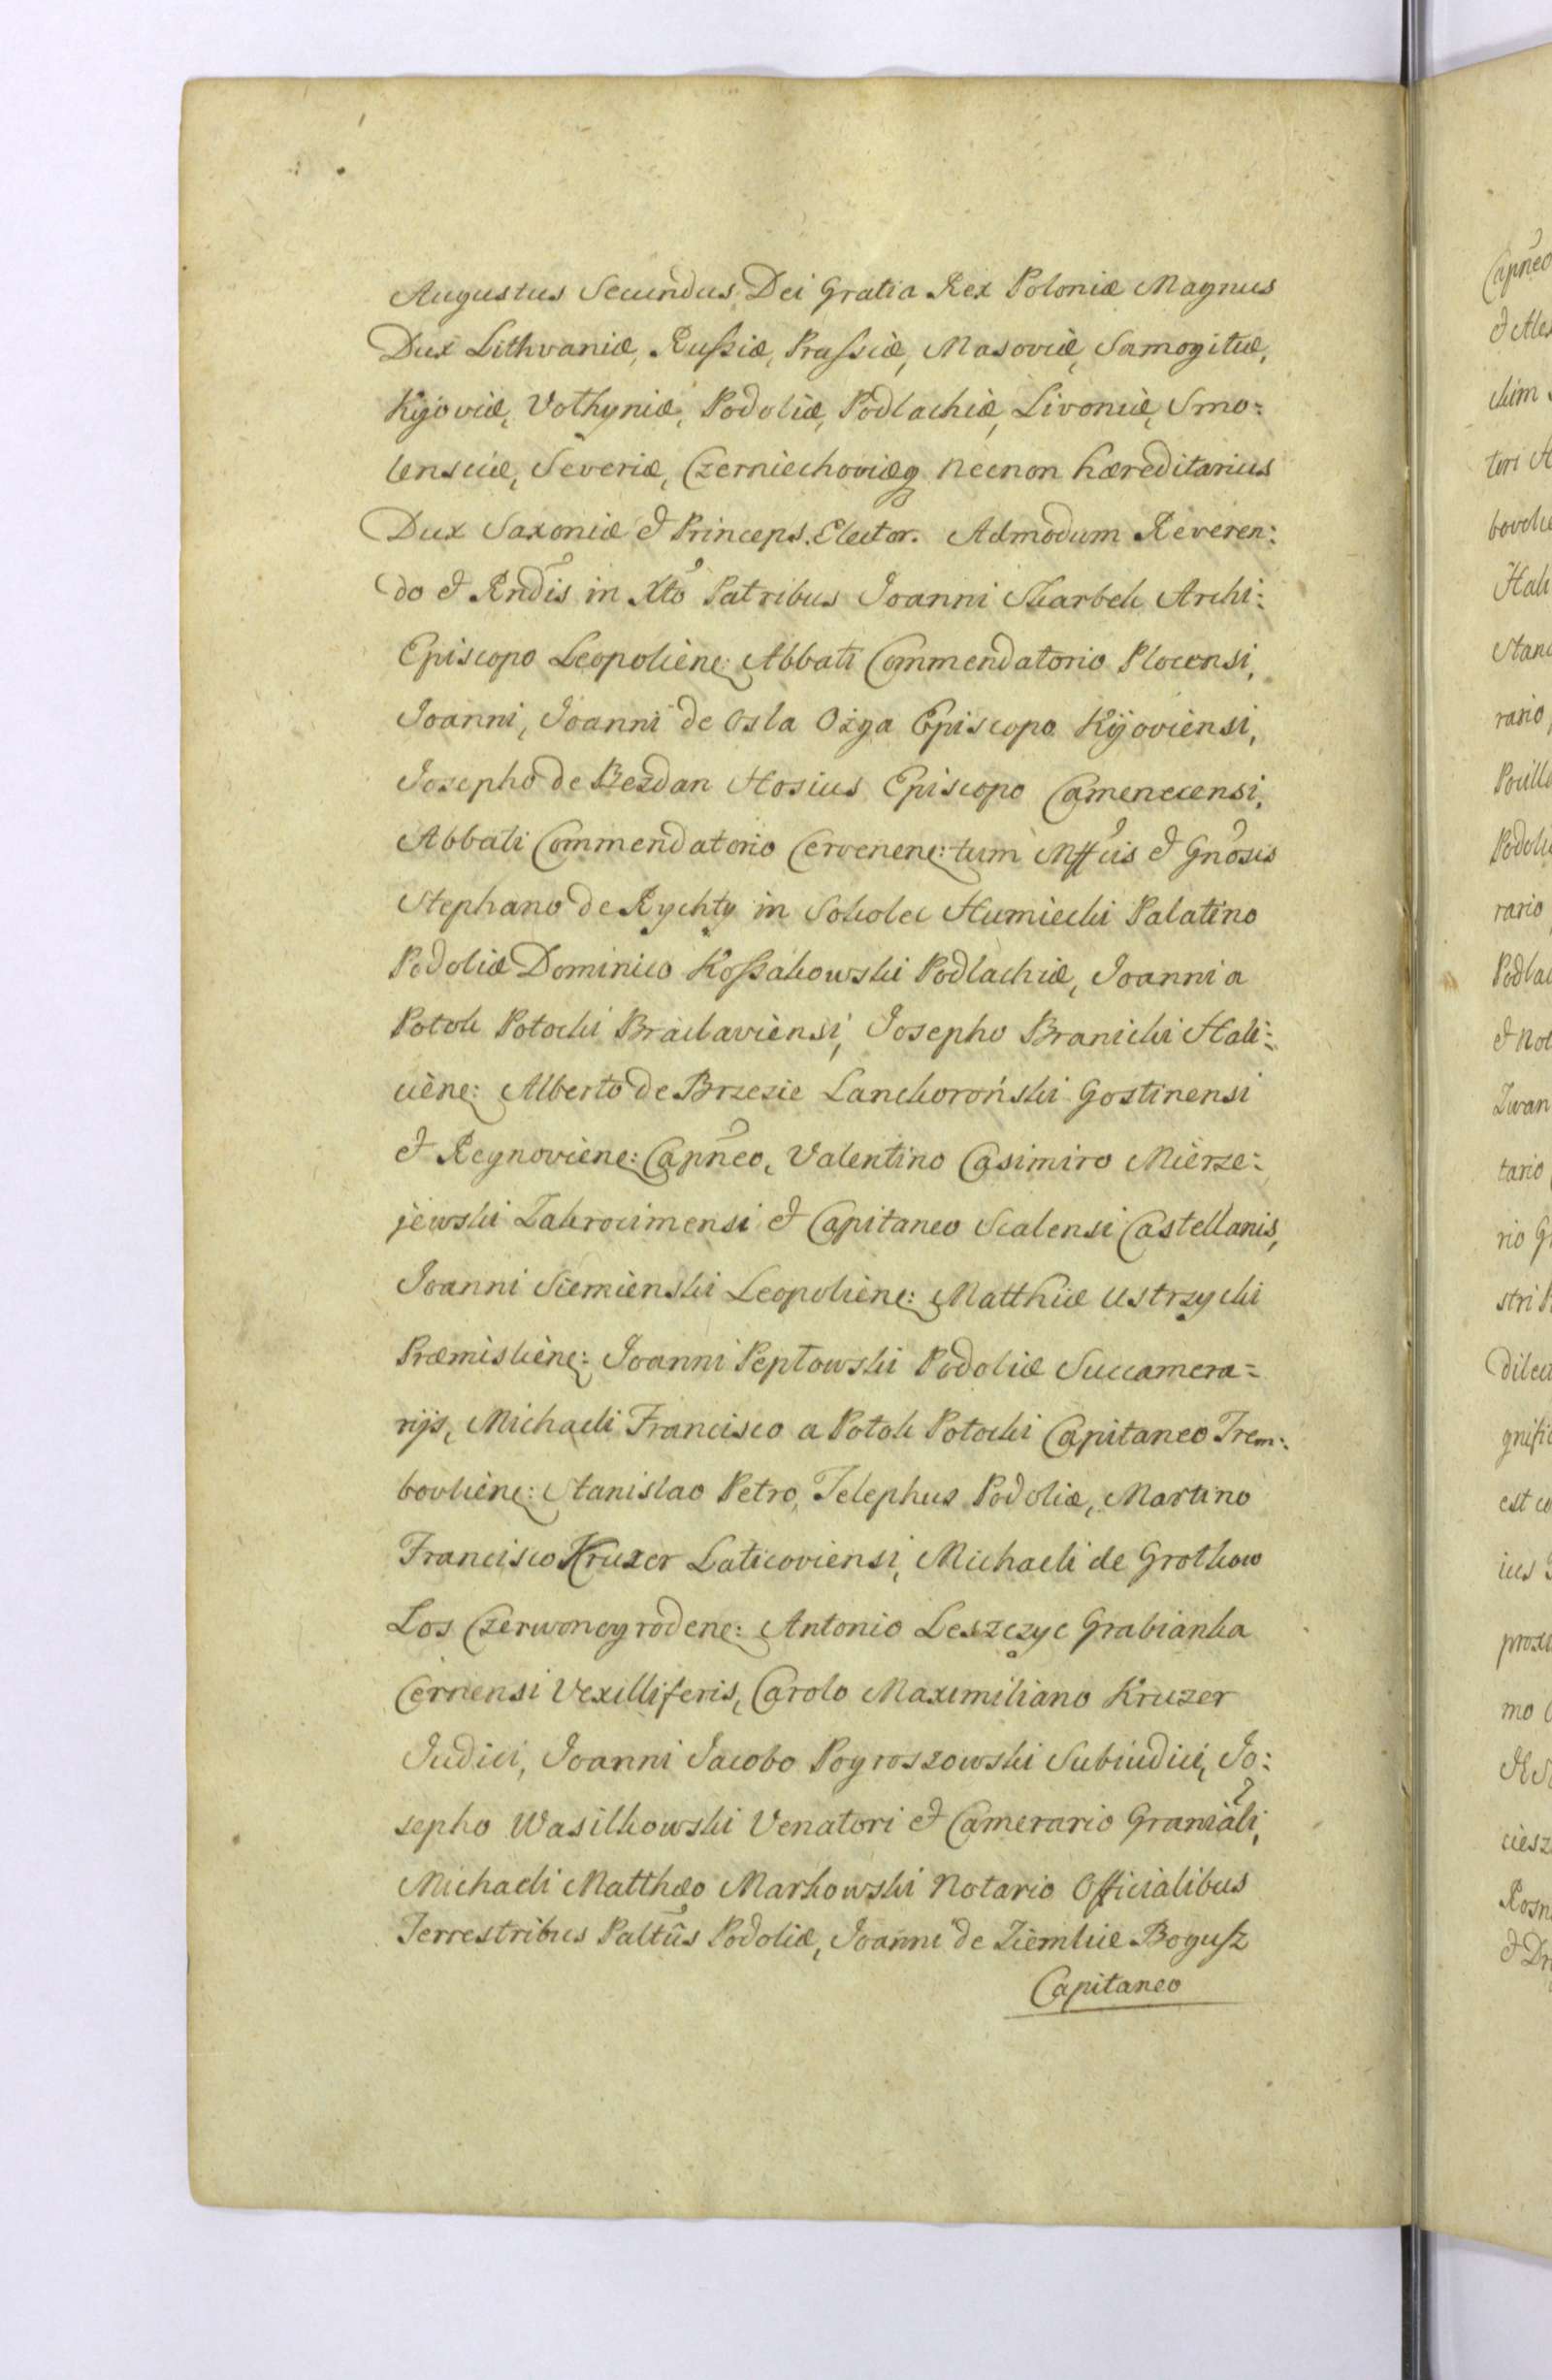 Augustus Secundus, Dei Gratia Rex Poloniæ Magnus
Dux Lithvaniæ, Rußiæ, Prußiæ, Masoviæ, Samogitiæ,
Kijoviæ, Volhyniæ, Podoliæ, Podlachiæ, Livoniæ, Smo:
lensciæ, Severiæ, Czerniechoviæq necnon hæreditarius
Dux Saxoniæ & Princeps Elector. Admodum Reveren:
do & Rndis in Xto Patribus Joanni Skarbek Archi:
Episcopo Leopoliene: Abbati Commendatorio Plocensi,
Joanni, Joanni de Osla Ożga Episcopo Kijoviensi,
Josepho de Bezdan Hosius Episcopo Camenecensi,
Abbati Commendatorio Cervenene: tum Mffcis & Gnosis
Stephano de Rychty in Sokolec Humiecki Palatino
Podoliæ Dominico Koßakowski Podlachiæ, Joanni a
Potok Potocki Braclaviensi, Josepho Branicki Hali:
ciene: Alberto de Brzezie Lanckoroński Gostinensi
& Reynoviene: Capneo, Valentino Casimiro Mierze:
jewski Zakrocimensi & Capitaneo Scalensi Castellanis,
Joanni Siemienski Leopoliene: Matthiæ Ustrzycki
Præmisliene: Joanni Peptowski Podoliæ Succamera=
rijs, Michaeli Francisco a Potok Potocki Capitaneo Trem:
bovliene: Stanislao Petro, Telephus Podoliæ, Martino
Francisco Kruzer Laticoviensi, Michaeli de Grotkow
Los Czerwonogrodene: Antonio Leszczyc Grabianka
Cernensi Vexilliferis, Carolo Maximiliano Kruzer
Judici, Joanni Jacobo Pogroszowski Subiudici, Jo:
sepho Wasilkowski Venatori & Camerario Graniali,
Michaeli Matthæo Markowski Notario Officialibus
Terrestribus Paltûs Podoliæ, Joanni de Ziemlice Bogusz
Capitaneo
Capneo
& Ale
ckim
tori
bovolie
Hali
Stan
rario
Podoli
rario
Podlac
& Not
Zwan
tario
rio G
stri
dilect
gnific
est co
ius
proxi
mo
ciesz
Rosn
& Dr